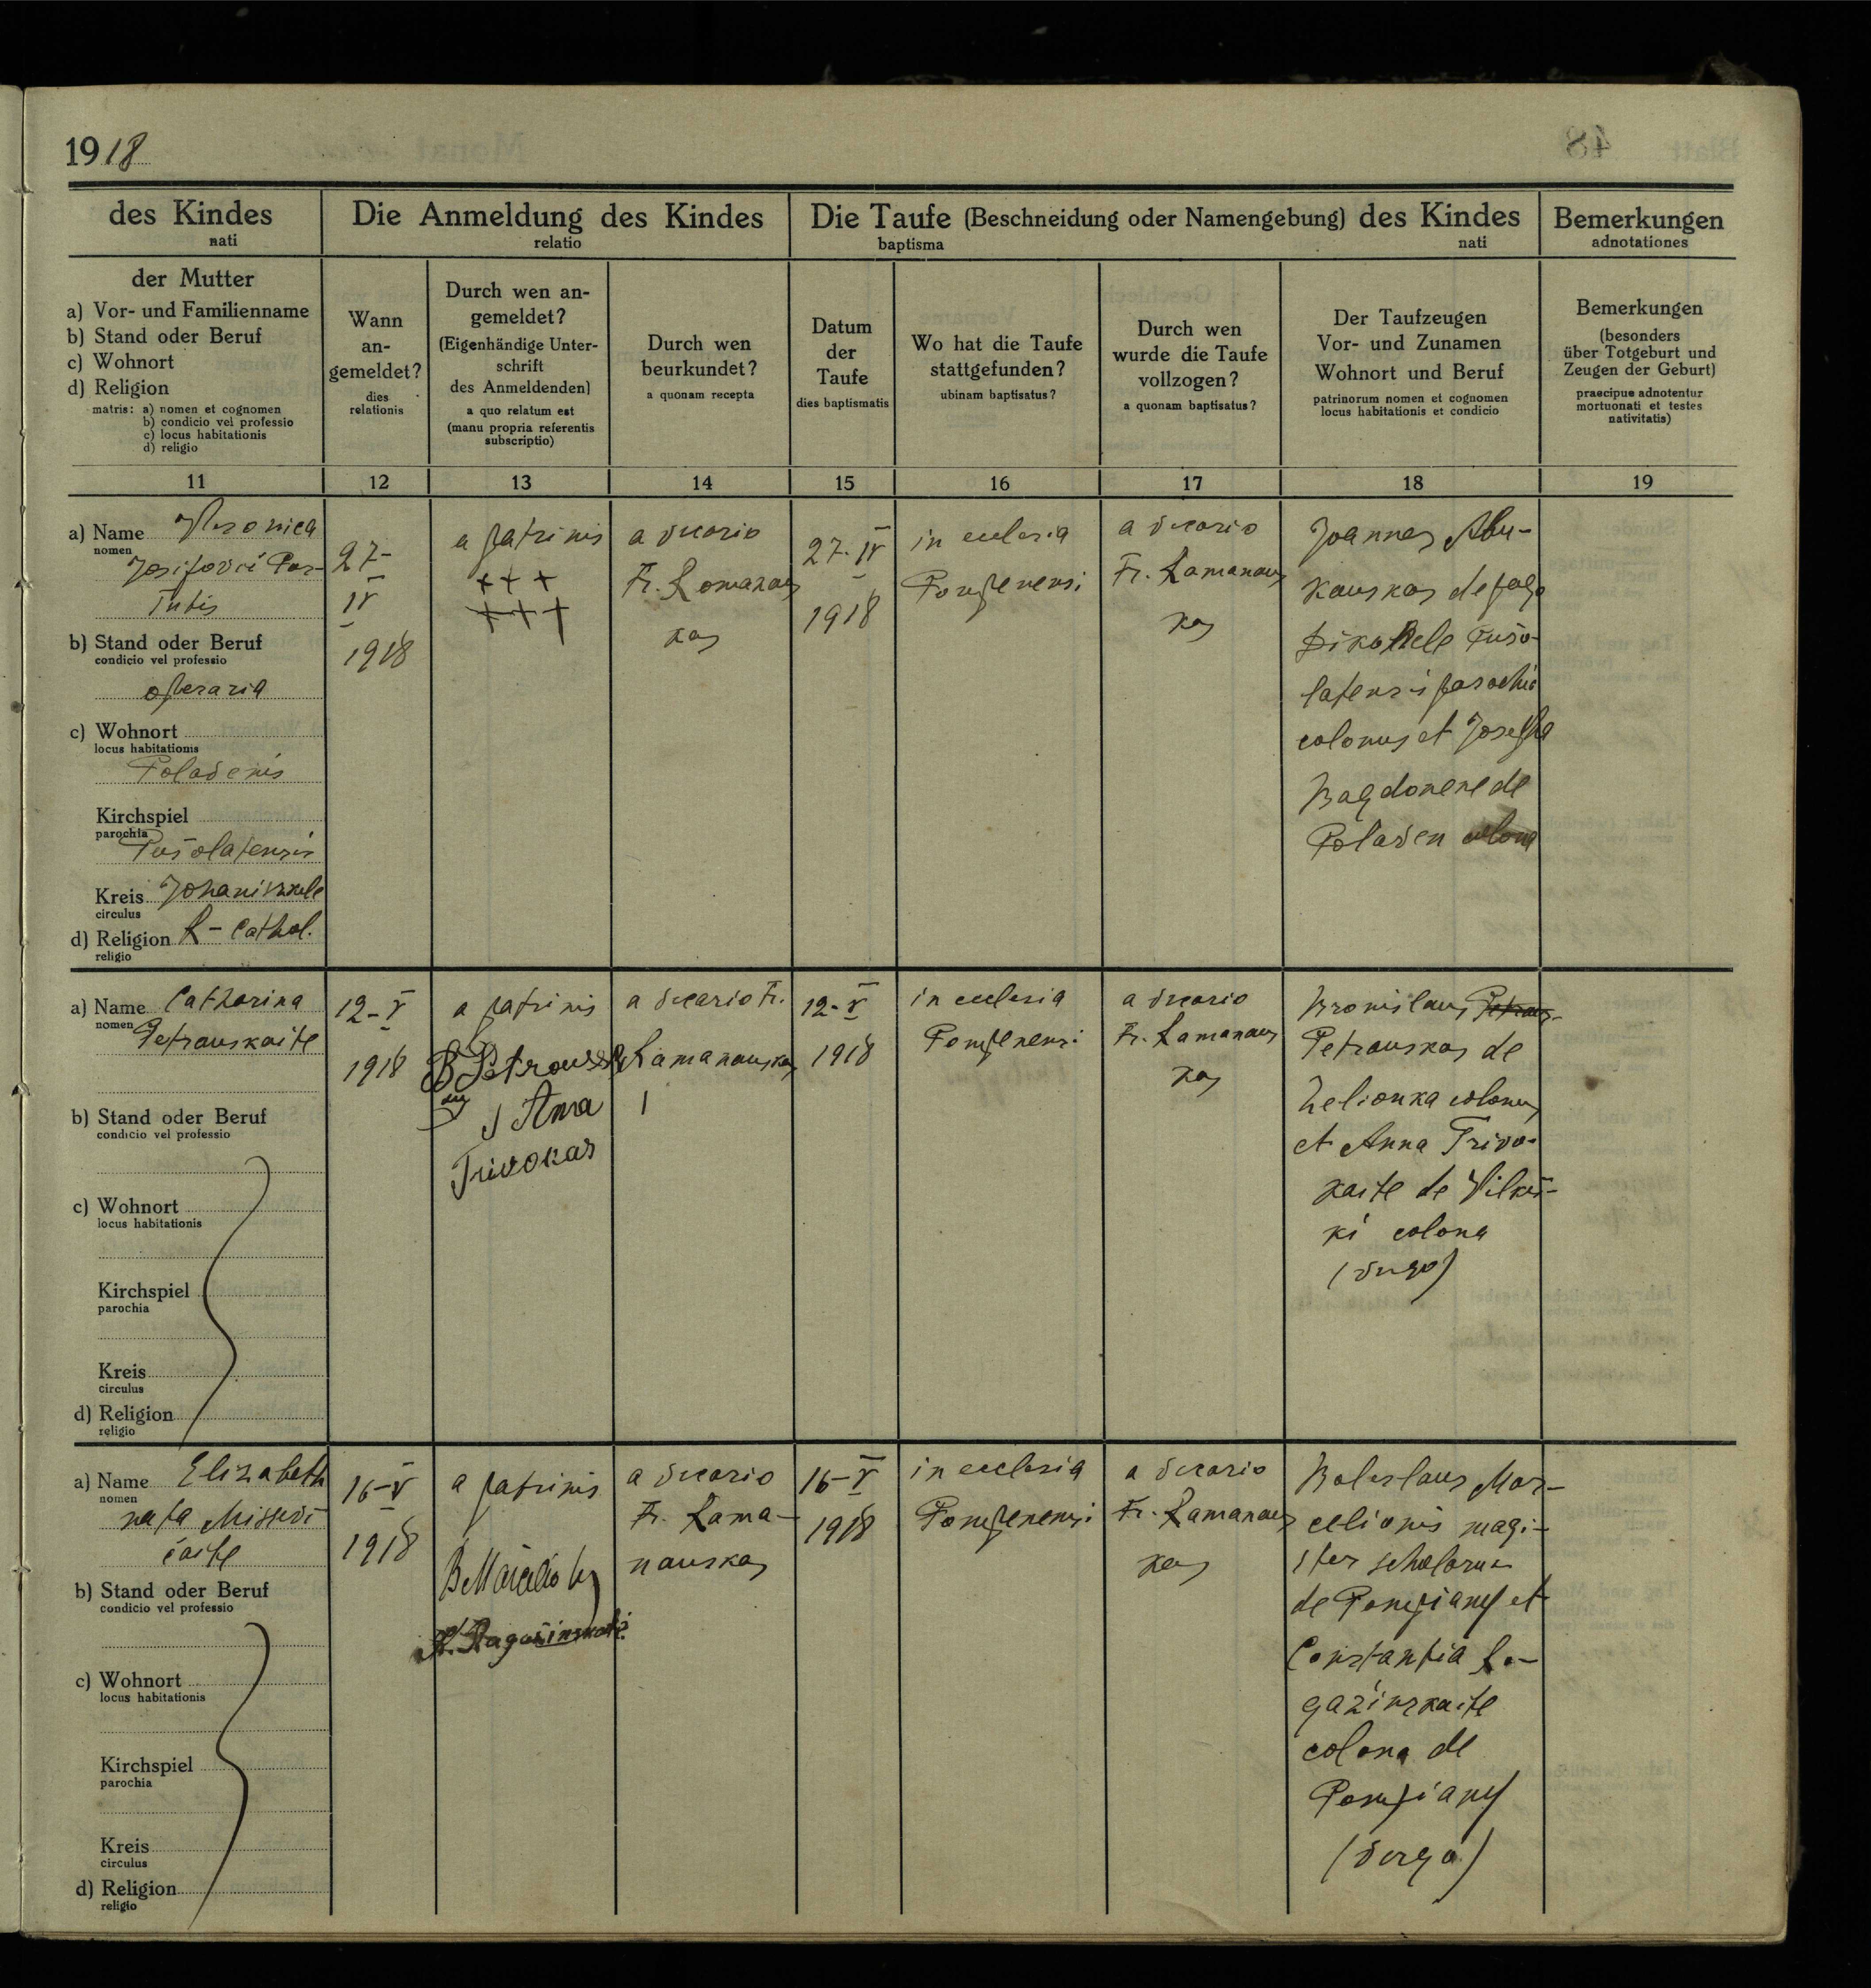 1918
des Kindes
nati
Die Anmeldung des Kindes
relatio
Die Taufe (Beschneidung oder Namengebung) des Kindes
baptisma nati
Bemerkungen
adnotationes
der Mutter
a) Vor- und Familienname
b) Stand oder Beruf
c) Wohnort
d) Religion
matris: a) nomen et cognomen
b) condicio vel professio
c) locus habitationis
d) religio
Wann
an-
gemeldet?
dies
relationis
Durch wen an-
gemeldet?
(Eigenhändige Unter-
schrift
des Anmeldenden)
a quo relatum est
(manu propria referentis
subscriptio)
Durch wen
beurkundet?
a quonam recepta
Datum
der
Taufe
dies baptismatis
Wo hat die Taufe
stattgefunden?
ubinam baptisatus?
Durch wen
wurde die Taufe
vollzogen?
a quonam baptisatus?
Der Taufzeugen
Vor- und Zunamen
Wohnort und Beruf
patrinorum nomen et cognomen
locus habitationis et condicio
Bemerkungen
(besonders
über Totgeburt und
Zeugen der Geburt)
praecipue adnotentur
mortuonati et testes
nativitatis)
11 12 13 14 15 16 17 18 19
a) Name Veronica
nomen
b) Stand oder Beruf
condicio vel professio
operaria
c) Wohnort
locus habitationis
Kirchspiel
parochia
Kreis
circulus
d) Religion R-Cathol.
religio
27-
IV
1918
a patrinis
+++
+++
a vicario
Fr. Lamanaus
kas
27-IV
1918
in ecclesia
Pompenensi
a vicario
Fr. Lamanaus
kas
Joannes
colonus et Josepha
Bagdonene de
a) Name Catharina
nomen Petrauskaite
b) Stand oder Beruf
condicio vel professio
c) Wohnort
locus habitationis
Kirchspiel
parochia
Kreis
circulus
d) Religion
religio
12-V
1918
a patrinis
Trivokas
a vicario Fr.
Lamanauskas
12-V
1918
in ecclesia
Pompenensi
a vicario
Fr. Lamanaus
kas
Bronislaus Petraus-
Petrauskas de
Zelionka colonus
et Anna Trivo-
kaite de
ki colona
(virgo)
a) Name Elizabeth
nomen nata
b) Stand oder Beruf
condicio vel professio
c) Wohnort
locus habitationis
Kirchspiel
parochia
Kreis
circulus
d) Religion
religio
16-V
1918
a patrinis
a vicario
Fr. Lama-
nauskas
16-V
1918
in ecclesia
Pompenensi
a vicario
Fr. Lamanaus
kas
Boleslaus Mar-
celionis magi-
ster scholarum
de Pompiany et
Constantia Ra-
gazinskaite
colona de
Pompiany
(virgo)